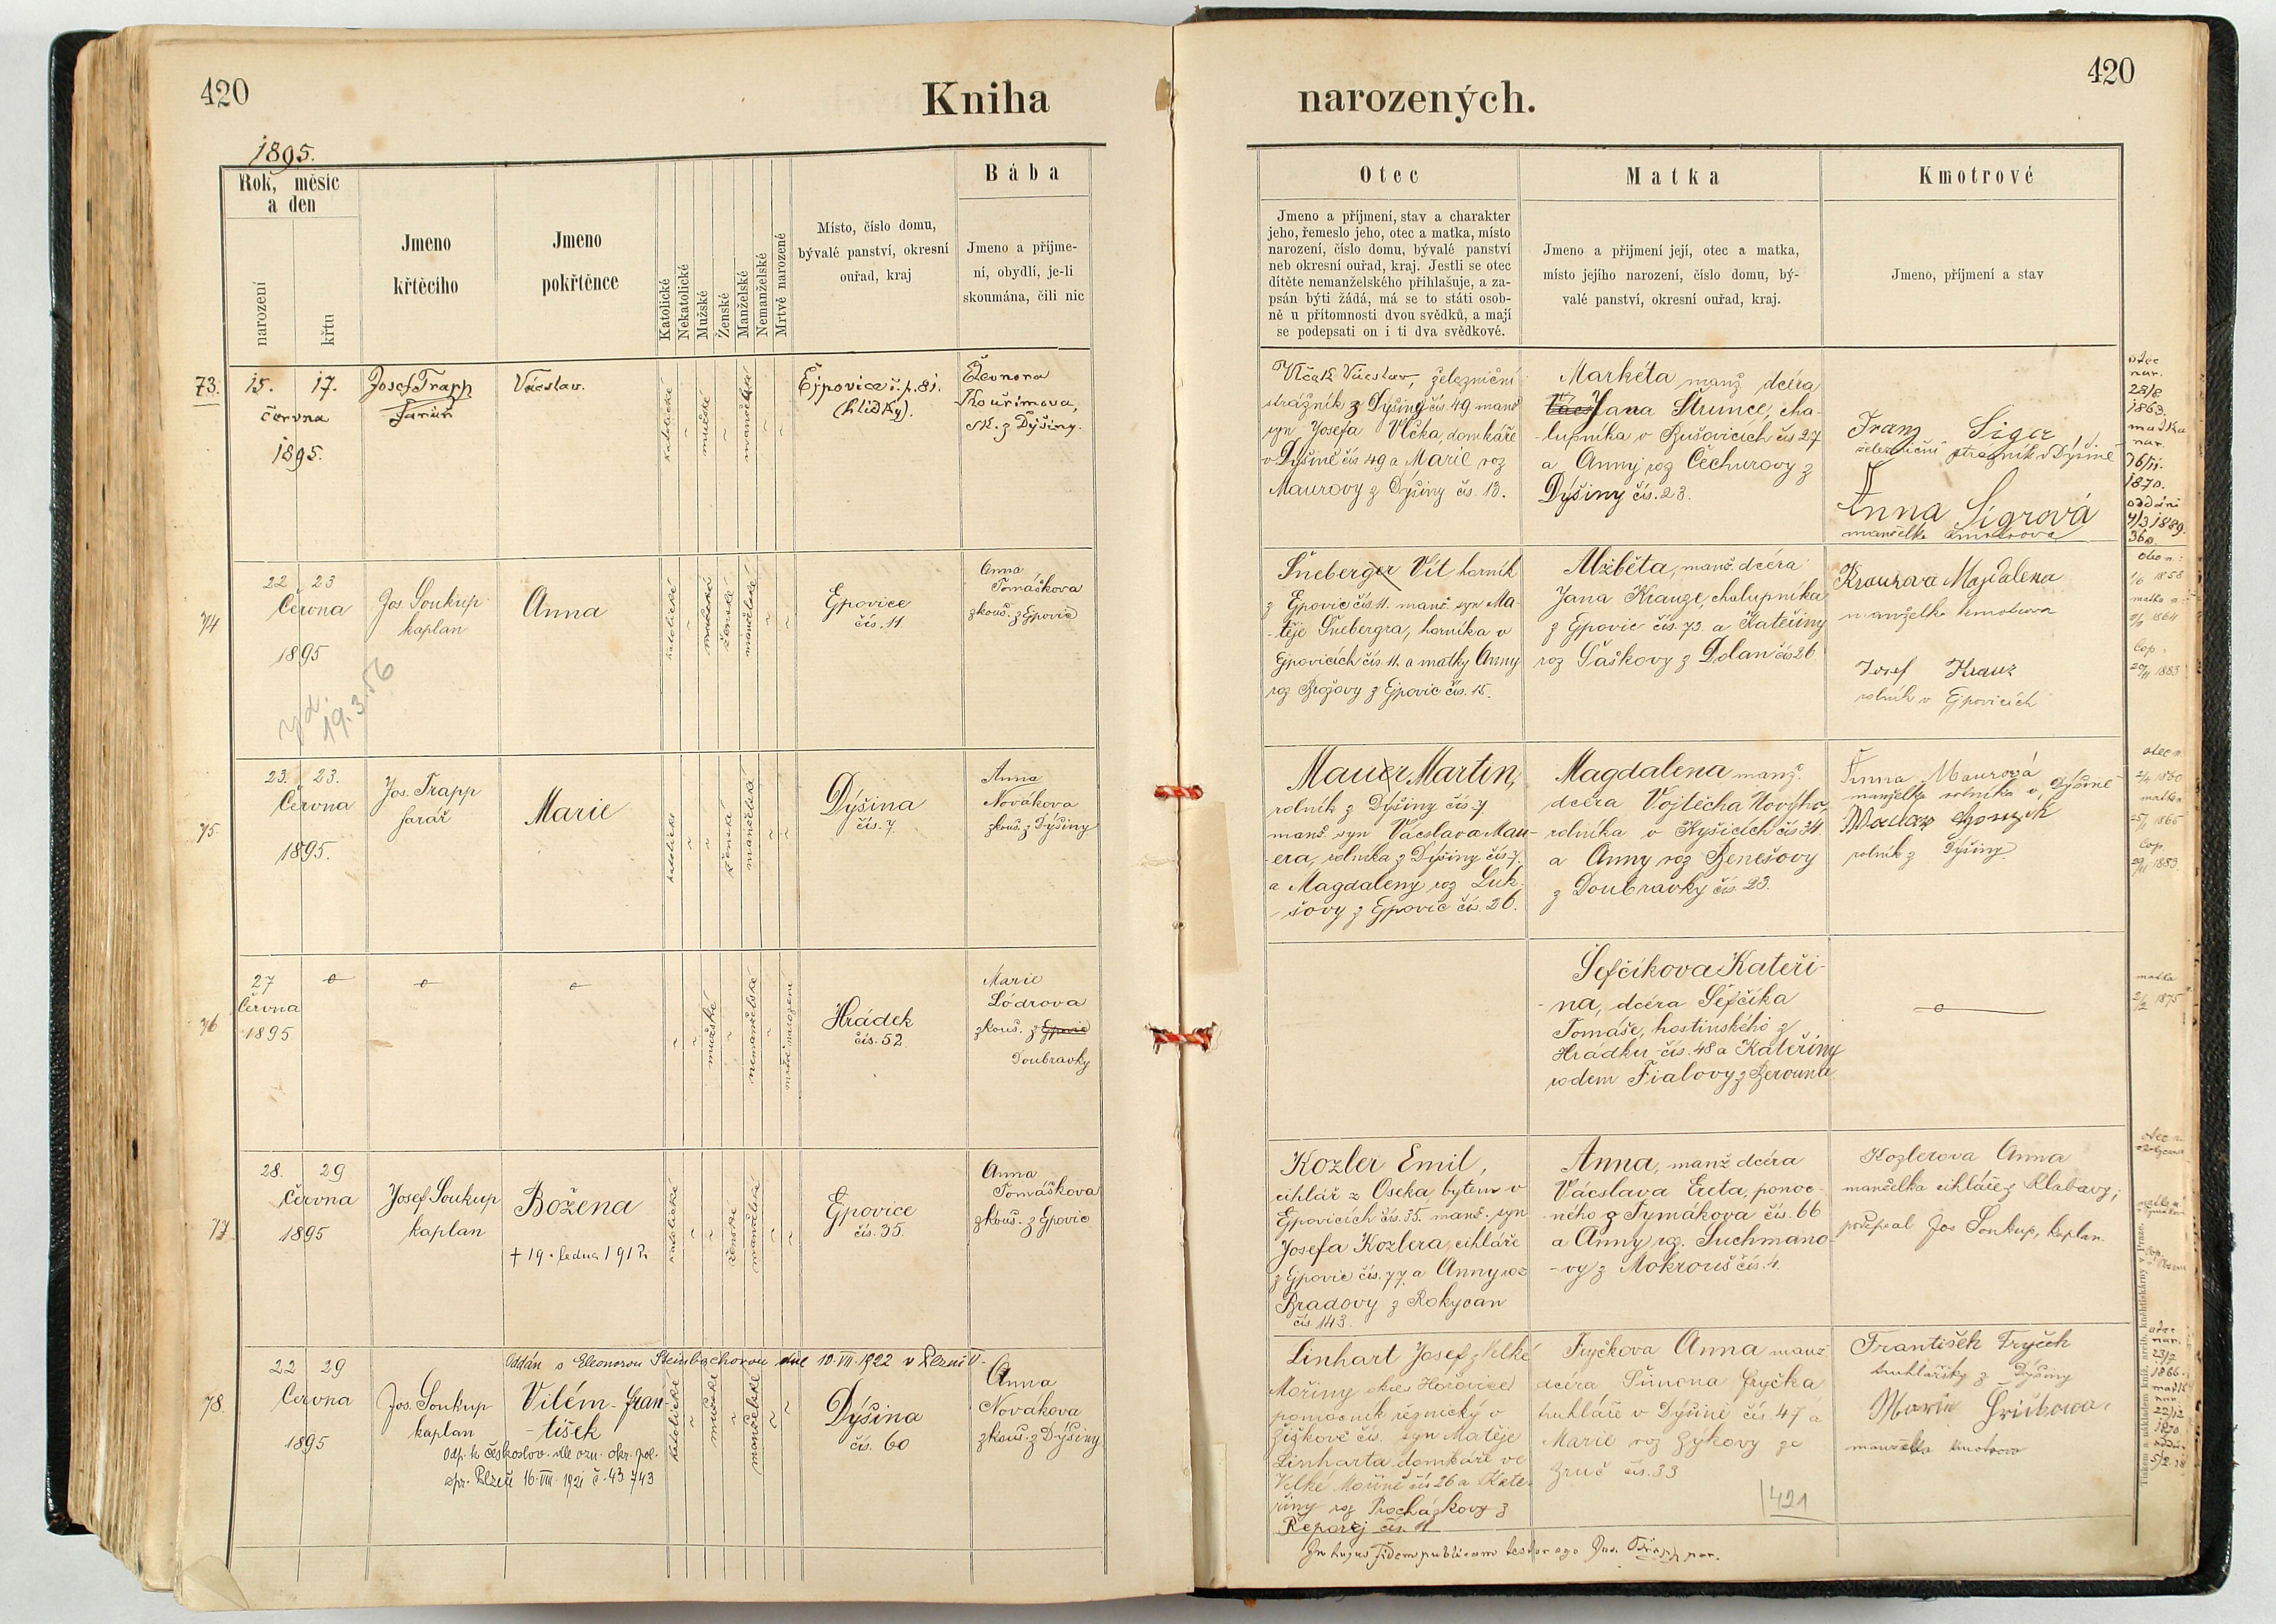 420
Kniha
1895.
Rok, měsíc
a den
narození
křtu
Jmeno
křtěcího
Jmeno
pokřtěnce
Katolické
Nekatolické
Mužské
Ženské
Manželské
Nemanželské
Mrtvě narozené
Místo, číslo domu,
bývalé panství, okresní
ouřad, kraj
Bába
Jmeno a příjme-
ní, obydlí, je-li
skoumána, čili nic
73.
15. 17.
června
1895.
Josef Trapp
farář
Václav.
katolické
mužské
manželské
Ejpovice č. p. 81.
(hlídky).
Eleonora
Kouřimova,
zk. z Dýšiny.
74
22 23
Června
1895
19.3.56
Jos. Soukup
kaplan
Anna
katolické
mužské
ženské
manželské
Ejpovice
čís. 11
Anna
Tomáškova
zkouš. z Ejpovic
75.
23. 23.
Června
1895.
Jos. Trapp
farář
Marie
katolické
ženské
manželské
Dýšina
čís. 7.
Anna
Novákova
zkouš. z Dýšiny
76
27
Června
1895
mužské
nemanželské
mrtvě narozené
Hrádek
čís. 52.
Marie
Lódrova
zkouš. z Ejpovic
Doubravky
77
28. 29
Června
1895
Josef Soukup
kaplan
Božena
† 19. ledna 191
katolické
ženské
manželské
Ejpovice
čís. 35.
Anna
Tomáškova
zkouš. z Ejpovic
Oddán s Eleonorou Steinbachovou dne 10. VII. 1922 v Plzni
78.
22 29
Června
1895
Jos. Soukup
kaplan
Vilém Fran-
-tišek
katolické
mužské
manželské
Dýšina
čís. 60
Anna
Novákova
zkouš. z Dýšiny
Odp. k českoslov. dle ozn. okr. pol.
spr. Plzeň 16. VIII. 1921 č. 43.743
420
narozených.
Otec
Jmeno a příjmení, stav a charakter
jeho, řemeslo jeho, otec a matka, místo
narození, číslo domu, bývalé panství
neb okresní ouřad, kraj. Jestli se otec
dítěte nemanželského přihlašuje, a za-
psán býti žádá, má se to státi osob-
ně u přítomnosti dvou svědků, a mají
se podepsati on i ti dva svědkové.
Matka
Jmeno a příjmení její, otec a matka,
místo jejího narození, číslo domu, bý-
valé panství, okresní ouřad, kraj.
Kmotrové
Jmeno, příjmení a stav
Vlčak Václav, železniční
strážník z Dýšiny čís. 49 manž.
syn Josefa Vlčka, domkáře
v Dýšině čís 49 a Marie roz
Maurovy z Dýšiny čís. 13.
Markéta manž dcéra
Jana Strunce, cha-
-lupníka v Bušovicích čís 27
a Anny roz Čechurovy z
Dýšiny čís. 23.
Franz Siger
železniční strážník v Dýšině
Anna Sigrová
manželka kmotrova
otec
nar.
28/8
1863.
matka
nar.
1870.
oddáni
4/3 1889.
Šneberger Vít horník
z Ejpovic čís. 11. manž. syn Ma-
-těje Šnebergra, horníka v
Ejpovicích čís. 11. a matky Anny
roz Brožovy z Ejpovic čís. 15.
Alžběta, manž. dcéra
Jana Krauze, chalupníka
z Ejpovic čís. 73. a Kateřiny
roz Šaškovy z Dolan čís 26
Krauzova Magdalena
manželka kmotrova
Josef Krauz
rolník v Ejpovicích
1858
1864
Cop.
1883
Mauer Martin,
rolník z Dýšiny čís. 7
manž. syn Václava Mau-
-era, rolníka z Dýšiny čís. 7.
a Magdaleny roz Luk-
-šovy z Ejpovic čís. 26.
Magdalena manž.
dcéra Vojtěcha Nového,
rolníka v Kyšicích čís 34
a Anny roz Benešovy
z Doubravky čís 23.
Anna Maurová
manželka rolníka v Dýšině
rolník z Dýšiny
otec n.
1860
matka
1865
Cop.
1883
Šefčíkova Kateři-
-na, dcéra Šefčíka
Tomáše, hostinského z
Hrádku čís. 48 a Kateřiny
rodem Fialovy z Berouna
matka
1875
Kozler Emil,
cihlář z Oseka, bytem v
Ejpovicích čís. 35. manž. syn
Josefa Kozlera, cihláře
z Ejpovic čís. 77. a Anny roz
Bradovy z Rokycan
čís 143.
Anna, manž dcéra
Václava Ereta, ponoc-
ného z Tymákova čís. 66
a Anny roz. Suchmano-
-vy z Mokrouš čís. 4.
Kozlerova Anna
manželka cihláře z Klabavy;
podepsal Jos Soukup, kaplan.
Linhart Josef z Velké
Mořiny okres Hořovice
pomocník řeznický v
Žižkově čís. syn Matěje
Linharta domkáře ve
Velké Mořině čís 26 a Kate-
řiny roz Procházkovy z
Řeporej čís. 11
Fryčkova Anna manž
dcéra Šimona Fryčka
truhláře v Dýšině čís. 47 a
Marie roz Zykovy ze
Zruč čís. 33
421
František Fryček
truhlářský z Dýšiny
Marie
manželka kmotrova
otec
nar.
23/7
1866.
matka
nar.
22/12
1870.
In hujus fidem publicam testor ego Jos. Trapp par.
Tiskem a nákladem kníž. arcib. knihtiskárny v Praze.